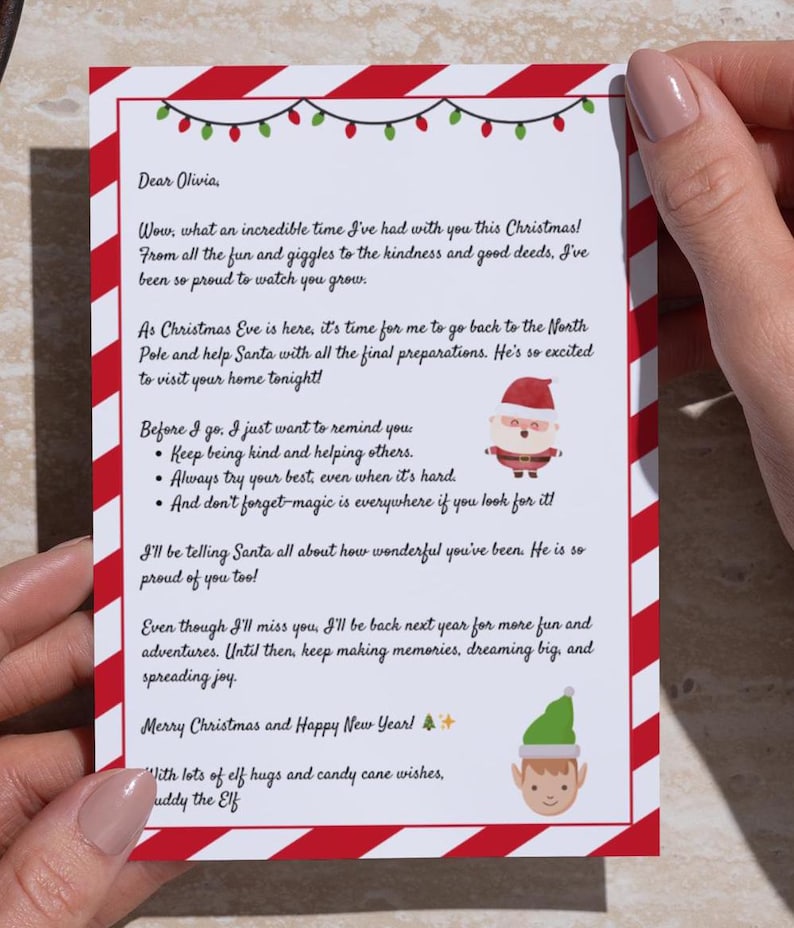 Dear Olivia,
Wow, what an incredible time I've had with you this Christmas!
From all the fun and giggles to the kindness and good deeds, I've
been so proud to watch you grow.
As Christmas Eve is here, it's time for me to go back to the North
Pole and help Santa with all the final preparations. He's so excited
to visit your home tonight!
Before I go, I just want to remind you:
• Keep being kind and helping others.
• Always try your best, even when it's hard.
• And don't forget—magic is everywhere if you look for it!
I'll be telling Santa all about how wonderful you've been. He is so
proud of you too!
Even though I'll miss you, I'll be back next year for more fun and
adventures. Until then, keep making memories, dreaming big, and
spreading joy.
Merry Christmas and Happy New Year! 🎄✨
With lots of elf hugs and candy cane wishes,
uddy the Elf